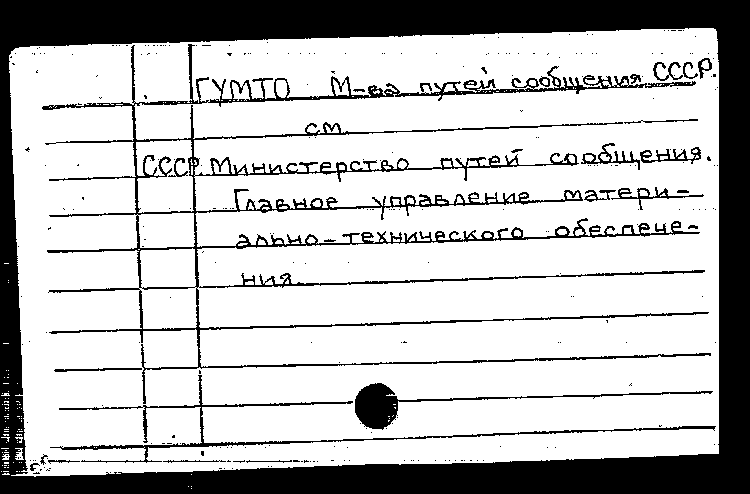 ГУМТО М-ва путей сообщения СССР.
см.
СССР. Министерство путей сообщения.
Главное управление матери-
ально-технического обеспече-
ния.